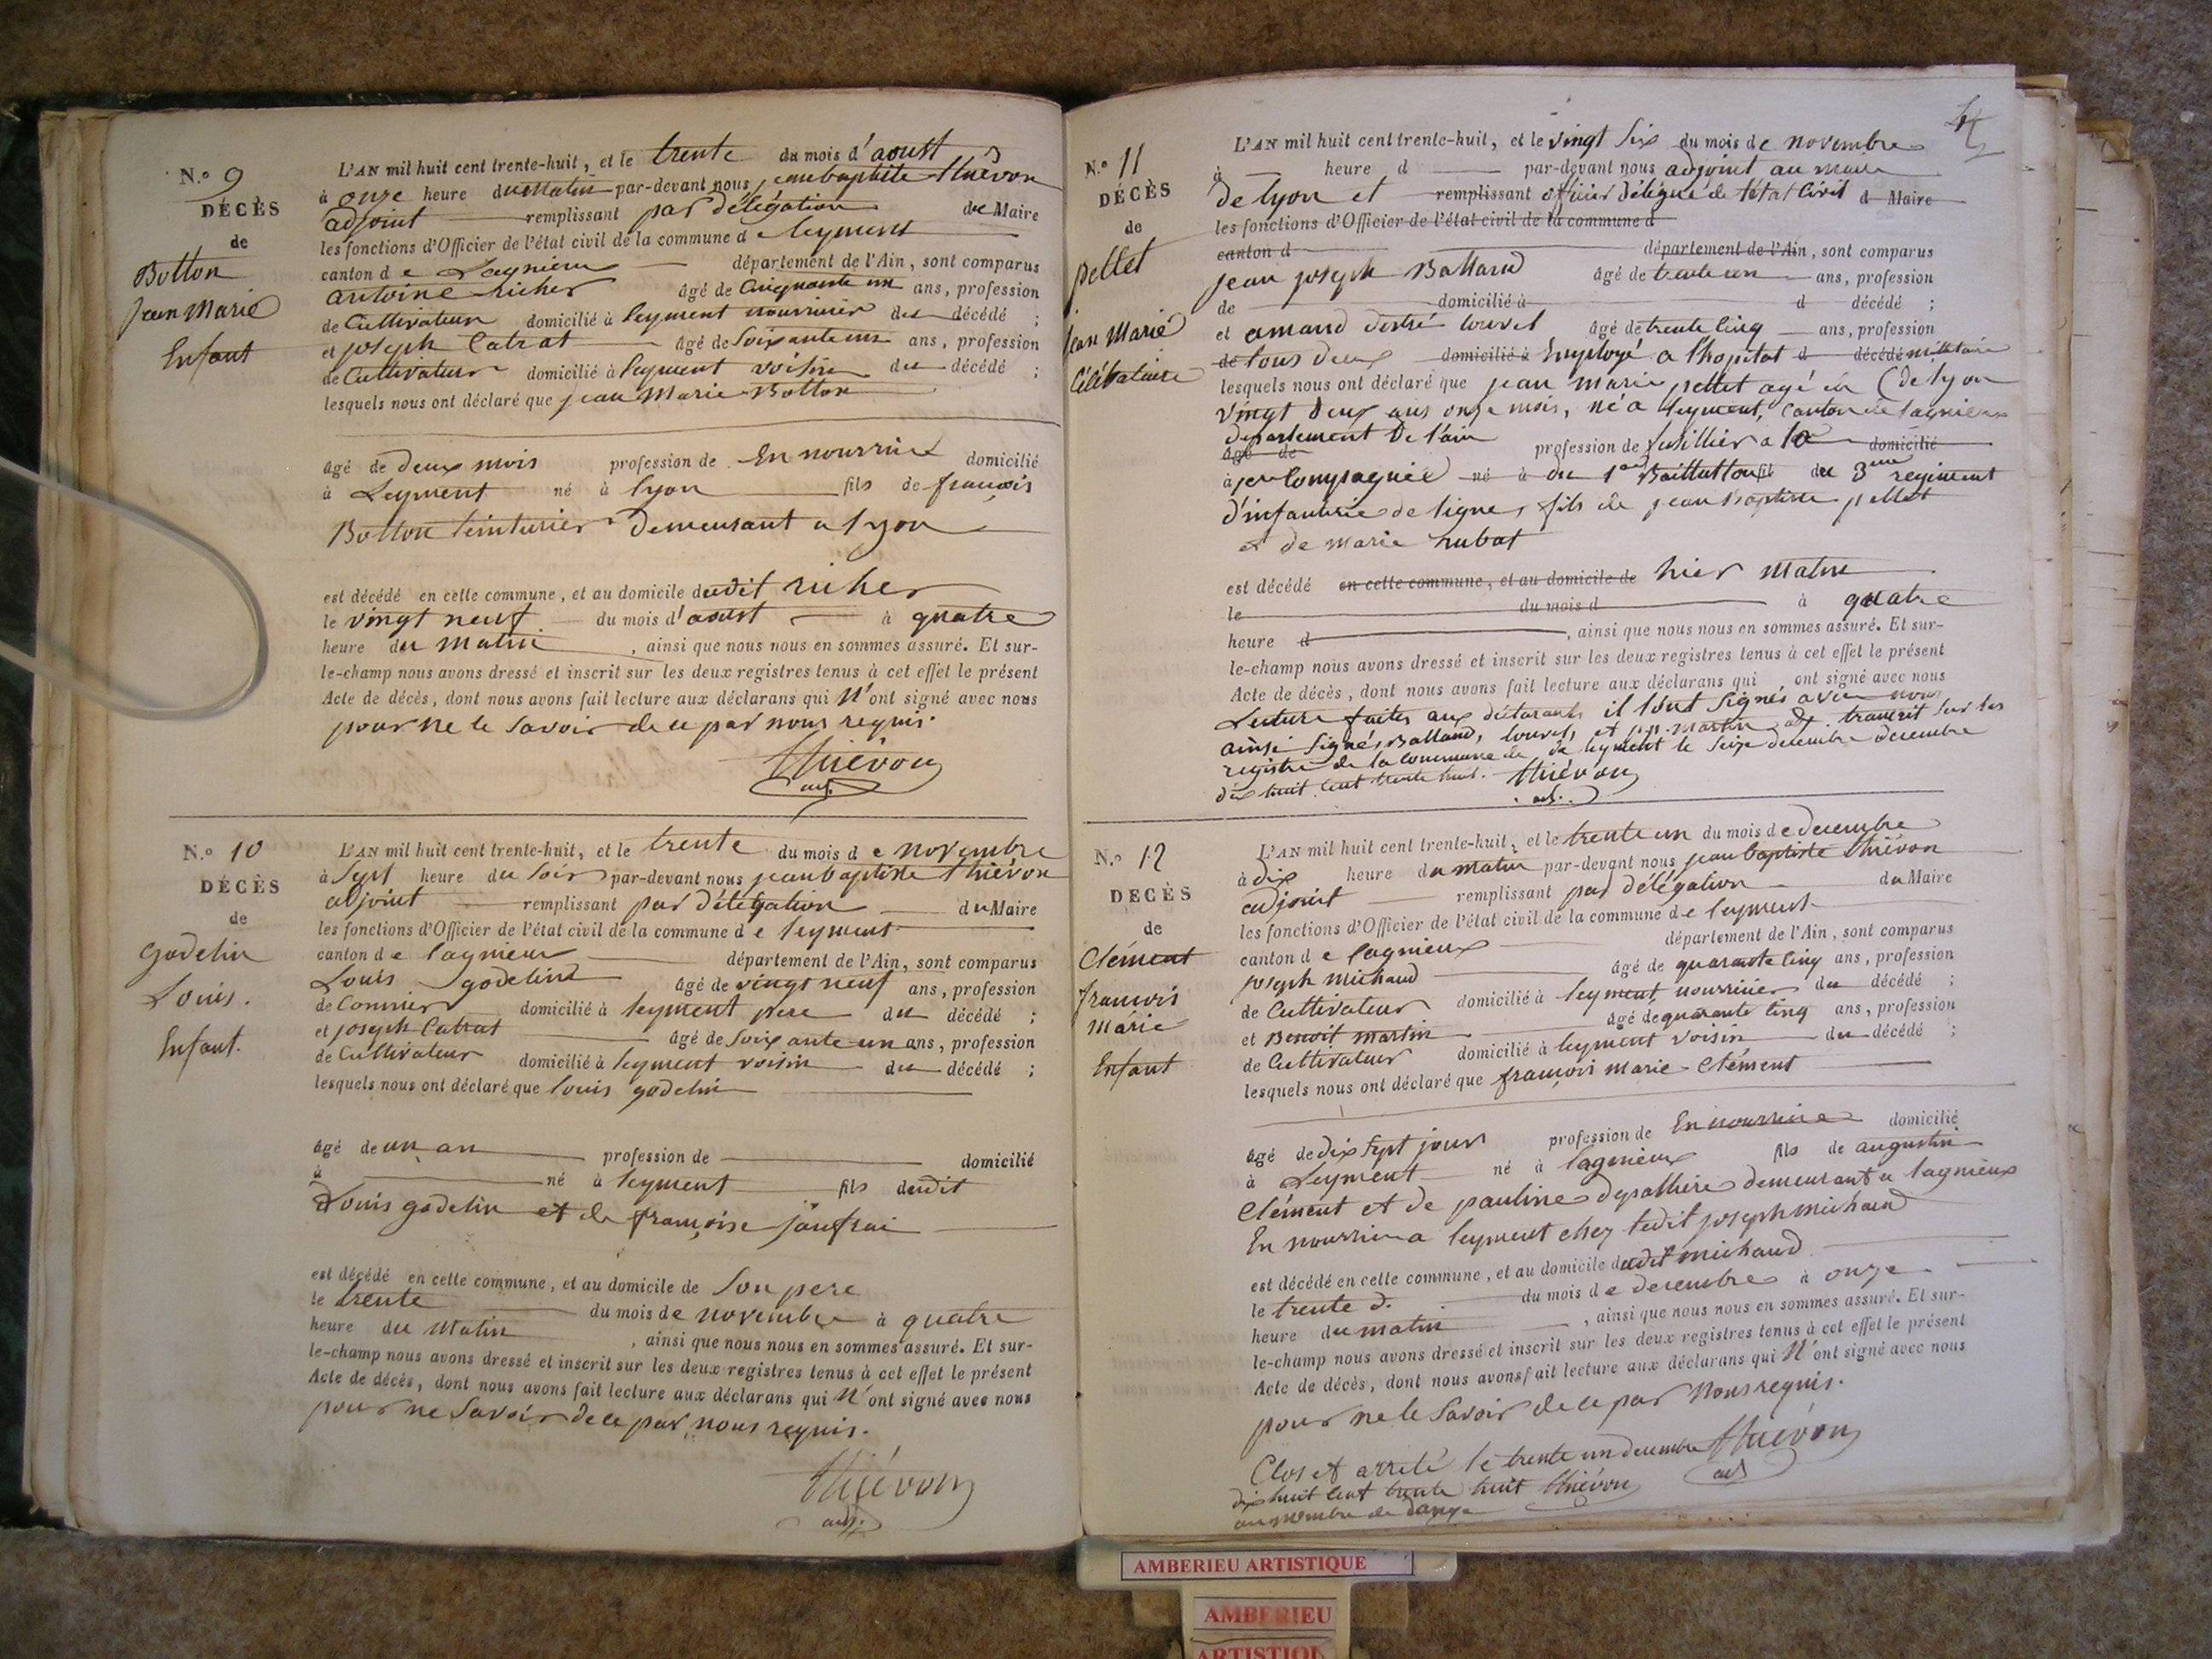 N.° 9
DÉCÈS
de
Botton
Jean Marie
Enfant
L'AN mil huit cent trente-huit, et le trente du mois d'aoust
à onze heure du matin par-devant nous jean baptiste thiévon
adjoint remplissant par délégation de Maire
les fonctions d'Officier de l'état civil de la commune de leyment
canton de Lagnieu département de l'Ain, sont comparus
antoine richer âgé de cinquante un ans, profession
de Cultivateur domicilié à leyment nourricier du décédé ;
et joseph Catrat âgé de soixante un ans, profession
de Cultivateur domicilié à leyment voisin du décédé ;
lesquels nous ont déclaré que jean Marie Botton
âgé de deux mois profession de En nourrice domicilié
à Leyment né à lyon fils de françois
Botton teinturier demeurant a lyon
est décédé en cette commune, et au domicile dudit richer
le vingt neuf du mois d'aoust à quatre
heure du matin, ainsi que nous nous en sommes assuré. Et sur-
le-champ nous avons dressé et inscrit sur les deux registres tenus à cet effet le présent
Acte de décès, dont nous avons fait lecture aux déclarans qui n'ont signé avec nous
pour ne le savoir de ce par nous requis.
thiévon
adj.
N.° 10
DÉCÈS
de
godelin
Louis.
Enfant.
L'AN mil huit cent trente-huit, et le trente du mois de novembre
à sept heure du soir par-devant nous jean baptiste thiévon
adjoint remplissant par délégation du Maire
les fonctions d'Officier de l'état civil de la commune de leyment
canton de lagnieu département de l'Ain, sont comparus
Louis godelin âgé de vingt neuf ans, profession
de domicilié à leyment pere du décédé ;
et joseph Catrat âgé de soixante un ans, profession
de Cultivateur domicilié à leyment voisin du décédé ;
lesquels nous ont déclaré que louis godelin
âgé de un an profession de domicilié
à né à leyment fils dudit
Louis godelin et de françoise jaufrai
est décédé en cette commune, et au domicile de son pere
le trente du mois de novembre à quatre
heure du matin, ainsi que nous nous en sommes assuré. Et sur-
le-champ nous avons dressé et inscrit sur les deux registres tenus à cet effet le présent
Acte de décès, dont nous avons fait lecture aux déclarans qui n'ont signé avec nous
pour ne savoir de ce par nous requis.
thiévon
adj.
N.° 11
DÉCÈS
de
pellet
jean Marie
Célébataire
L'AN mil huit cent trente-huit, et le vingt six du mois de novembre
à heure d par-devant nous adjoint au maire
de lyon et remplissant officier délégué de l'état Civil d Maire
les fonctions d'Officier de l'état civil de la commune d
canton d département de l'Ain, sont comparus
jean joseph Balland âgé de trente un ans, profession
de domicilié à d décédé ;
et amand désiré louvet âgé de trente cinq ans, profession
de tous deux domicilié à Employé a l'hopital d décédé militaire
lesquels nous ont déclaré que jean marie pellet agé de (de lyon
vingt deux ans onze mois, né a leyment, Canton de lagnieu
departement De l'ain
âgé de profession de fusillier a la domicilié
à Compagnie né à du 1er Baittallon fil du 3me regiment
d'infanterie de ligne, fils de jean baptiste pellet
et de marie hubat
est décédé en cette commune, et au domicile de hier matin
le du mois d à quatre
heure d, ainsi que nous nous en sommes assuré. Et sur-
le-champ nous avons dressé et inscrit sur les deux registres tenus à cet effet le présent
Acte de décès, dont nous avons fait lecture aux déclarans qui ont signé avec nous
Lecture faites aux déclarants il sont signés avec nous
ainsi signés, Balland, louvet, et martin adj. transcrit sur les
registre de la commune de leyment le seize decembre decembre
dix huit cent trente huit. thiévon
adj.
N.° 12
DÉCÈS
de
Clément
françois
Marie
Enfant
L'AN mil huit cent trente-huit, et le trente un du mois de decembre
à dix heure du matin par-devant nous jean baptiste thiévon
adjoint remplissant par délégation du Maire
les fonctions d'Officier de l'état civil de la commune de leyment
canton de lagnieux département de l'Ain, sont comparus
joseph michaud âgé de quarante cinq ans, profession
de Cultivateur domicilié à leyment nourricier du décédé ;
et Benoit martin âgé de quarante cinq ans, profession
de Cultivateur domicilié à leyment voisin du décédé ;
lesquels nous ont déclaré que françois marie Clément
âgé de dix sept jours profession de En nourrice domicilié
à Leyment né à lagnieux fils de augustin
Clément et de pauline demeurant a lagnieux
En nourrice a leyment chez ledit joseph michaud
est décédé en cette commune, et au domicile dudit michaud
le trente d. du mois de decembre à onze
heure du matin, ainsi que nous nous en sommes assuré. Et sur-
le-champ nous avons dressé et inscrit sur les deux registres tenus à cet effet le présent
Acte de décès, dont nous avons fait lecture aux déclarans qui n'ont signé avec nous
pour ne le savoir de ce par nous requis.
Clos et arreté le trente un decembre thiévon
dix huit cent trente huit thiévon adj
au nombre de douze
AMBERIEU ARTISTIQUE
AMBERIEU
ARTISTIQUE